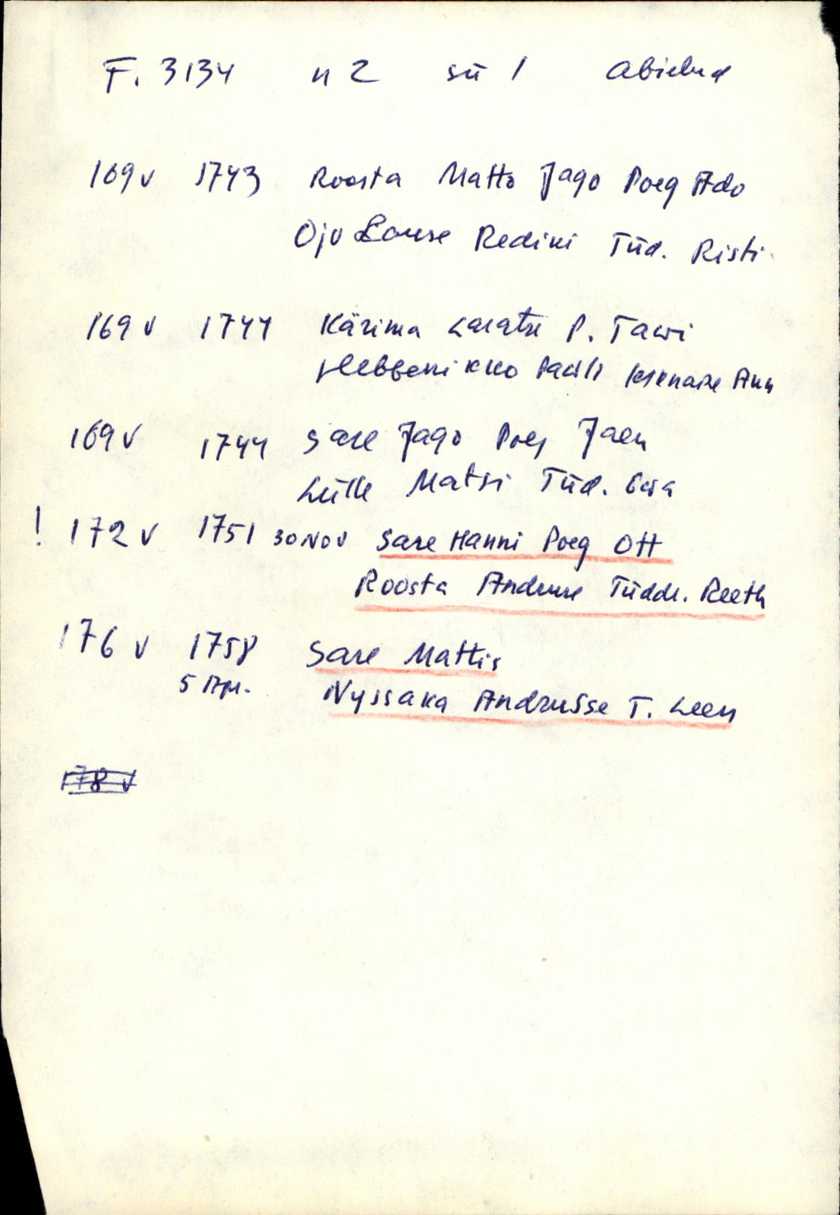 F. 3134 n 2 sü 1 abielud
169 v 1743 Roosta Matto Jago Poeg Ado
Oju Redini Tüd. Risti
169 v 1744 Kärima P. Tawi
Ann
169 v 1744 Sare Jago Poeg Jaen
Lülle Matsi Tüd. Ewa
! 172 v 1751 30 NOV Sare Hanni Poeg Ott
Roosta Andruse Tüddr. Reeth
176 v 1758 Sare Mattis
5 Apr. Nyssaka Andrusse T. Leen
178 v